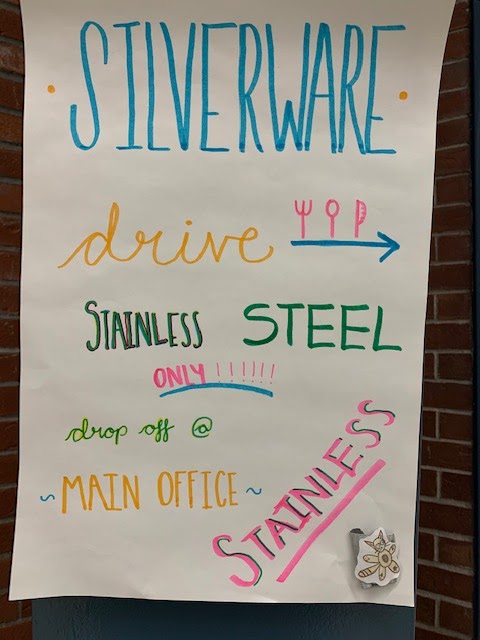 • SILVERWARE •
drive
STAINLESS STEEL
ONLY !!!!!!
drop off @
~ MAIN OFFICE ~
STAINLESS